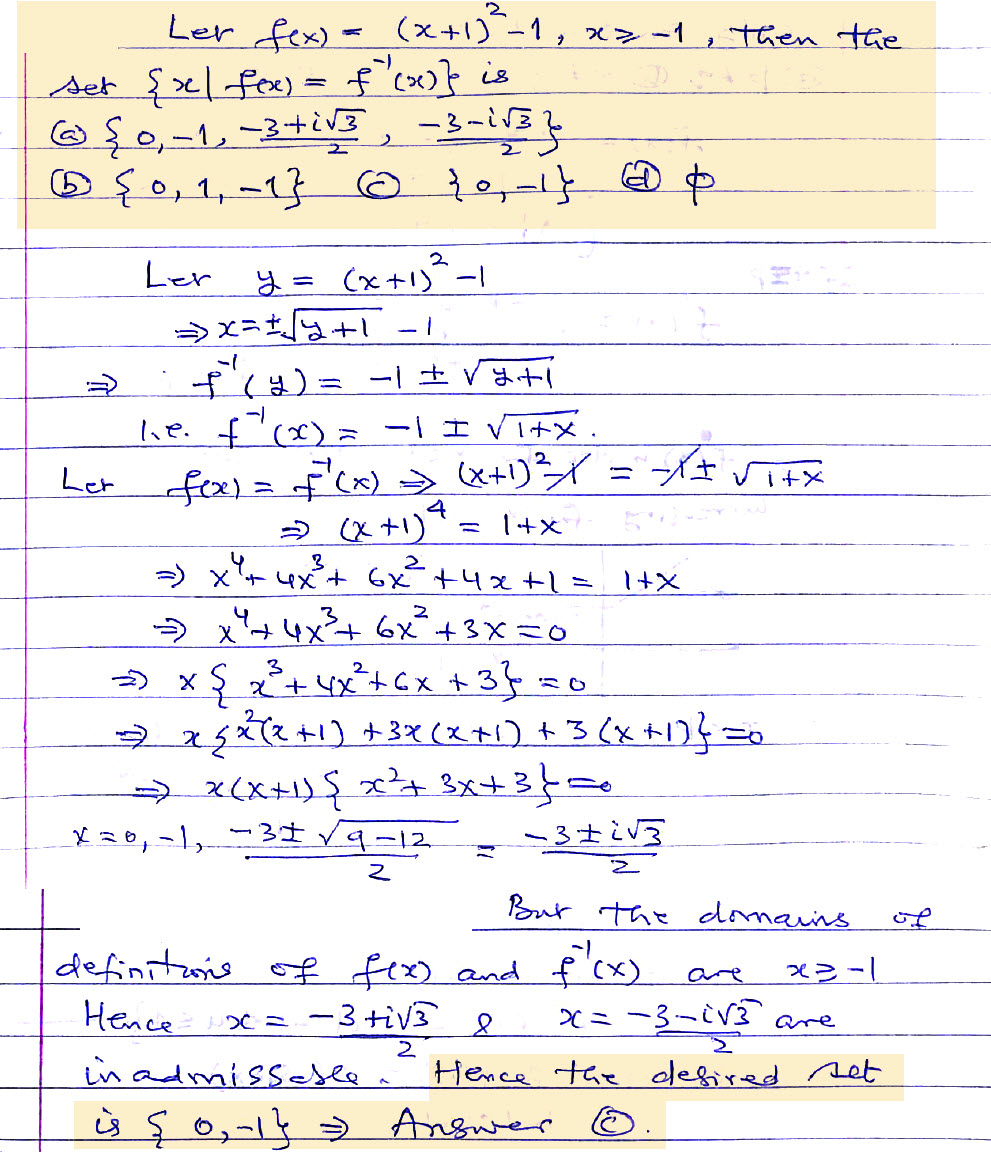 Let f(x) = (x+1)² -1, x ≥ -1, then the
set {x | f(x) = f⁻¹(x)} is
(a) {0, -1, (-3+i√3)/2, (-3-i√3)/2}
(b) {0, 1, -1} (c) {0, -1} (d) φ
Let y = (x+1)² -1
⇒ x = ±√(y+1) - 1
⇒ f⁻¹(y) = -1 ± √(y+1)
i.e. f⁻¹(x) = -1 ± √(1+x).
Let f(x) = f⁻¹(x) ⇒ (x+1)² -1 = -1 ± √(1+x)
⇒ (x+1)⁴ = 1+x
⇒ x⁴ + 4x³ + 6x² + 4x + 1 = 1+x
⇒ x⁴ + 4x³ + 6x² + 3x = 0
⇒ x { x³ + 4x² + 6x + 3} = 0
⇒ x {x²(x+1) + 3x(x+1) + 3(x+1)} = 0
⇒ x(x+1) { x² + 3x + 3} = 0
x = 0, -1, (-3 ± √(9-12))/2 = (-3 ± i√3)/2
But the domains of
definitions of f(x) and f⁻¹(x) are x ≥ -1
Hence x = (-3+i√3)/2 & x = (-3-i√3)/2 are
inadmissable. Hence the desired set
is {0, -1} ⇒ Answer (c).